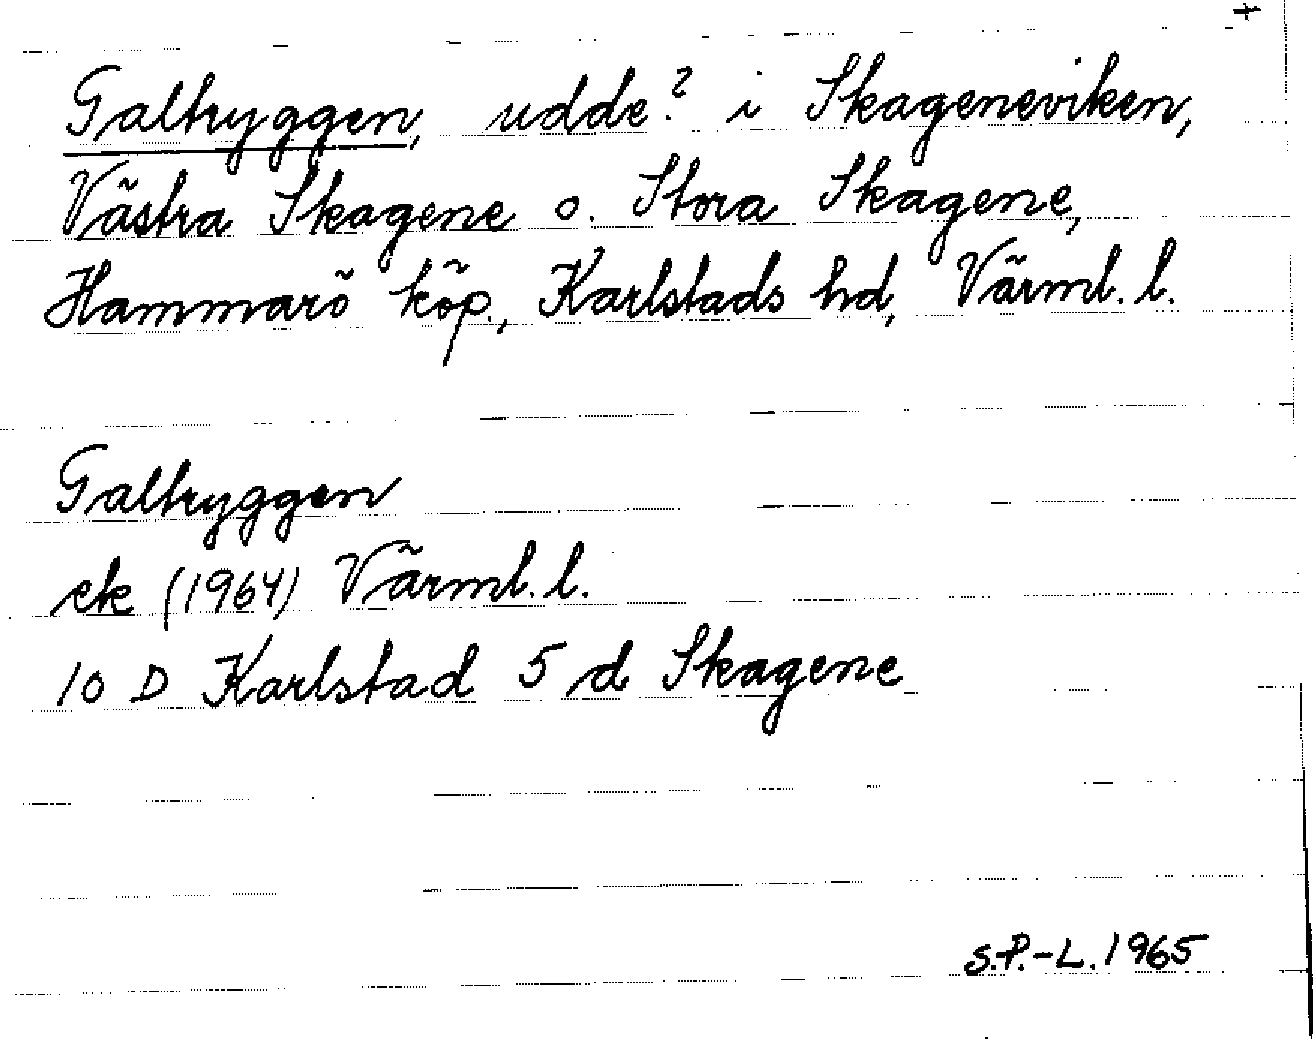 +
Galtryggen, udde? i Skageneviken,
Västra Skagene o. Stora Skagene,
Hammarö köp., Karlstads hd, Värml. l.
Galtryggen
ek (1964) Värml. l.
10 D Karlstad 5 d Skagene
S.P.-L. 1965